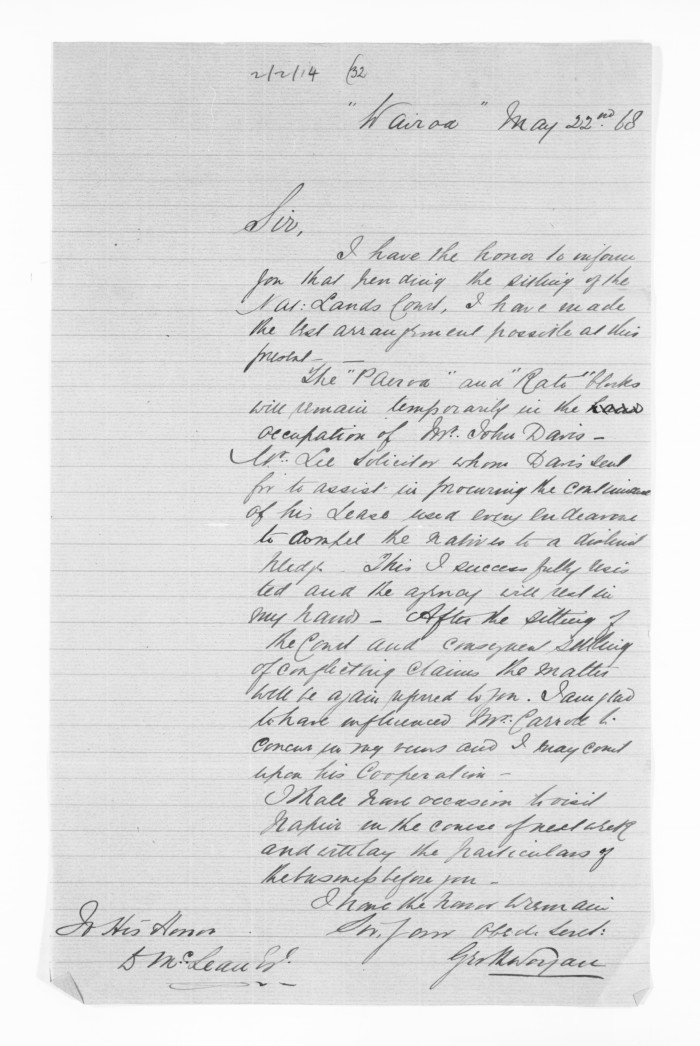 2/2/14 (32
"Wairoa" May 22nd. 68
Sir,
I have the honor to inform
you that pending the sitting of the
Nat: Lands Court, I have made
the best arrangement possible at this
present —
The "Paeroa" and "Rato" blocks
will remain temporarily in the
occupation of Mr. John Davis —
Mr. Lee Solicitor whom Davis sent
for to assist in procuring the continuance
of his Lease used every endeavour
to compel the natives to a distinct
pledge. This I successfully resis
ted and the agency will rest in
my hands — After the sitting of
the Court and consequent settling
of conflicting claims the matter
will be again referred to you. I am glad
to have influenced Mr. Carroll to
concur in my views and I may count
upon his Cooperation —
I shall have occasion to visit
Napier in the course of next week
and will lay the particulars of
the business before you —
I have the honor to remain
Sir, Your Obedt. Servt:
Geo Worgan
To His Honor
D McLean Esq.